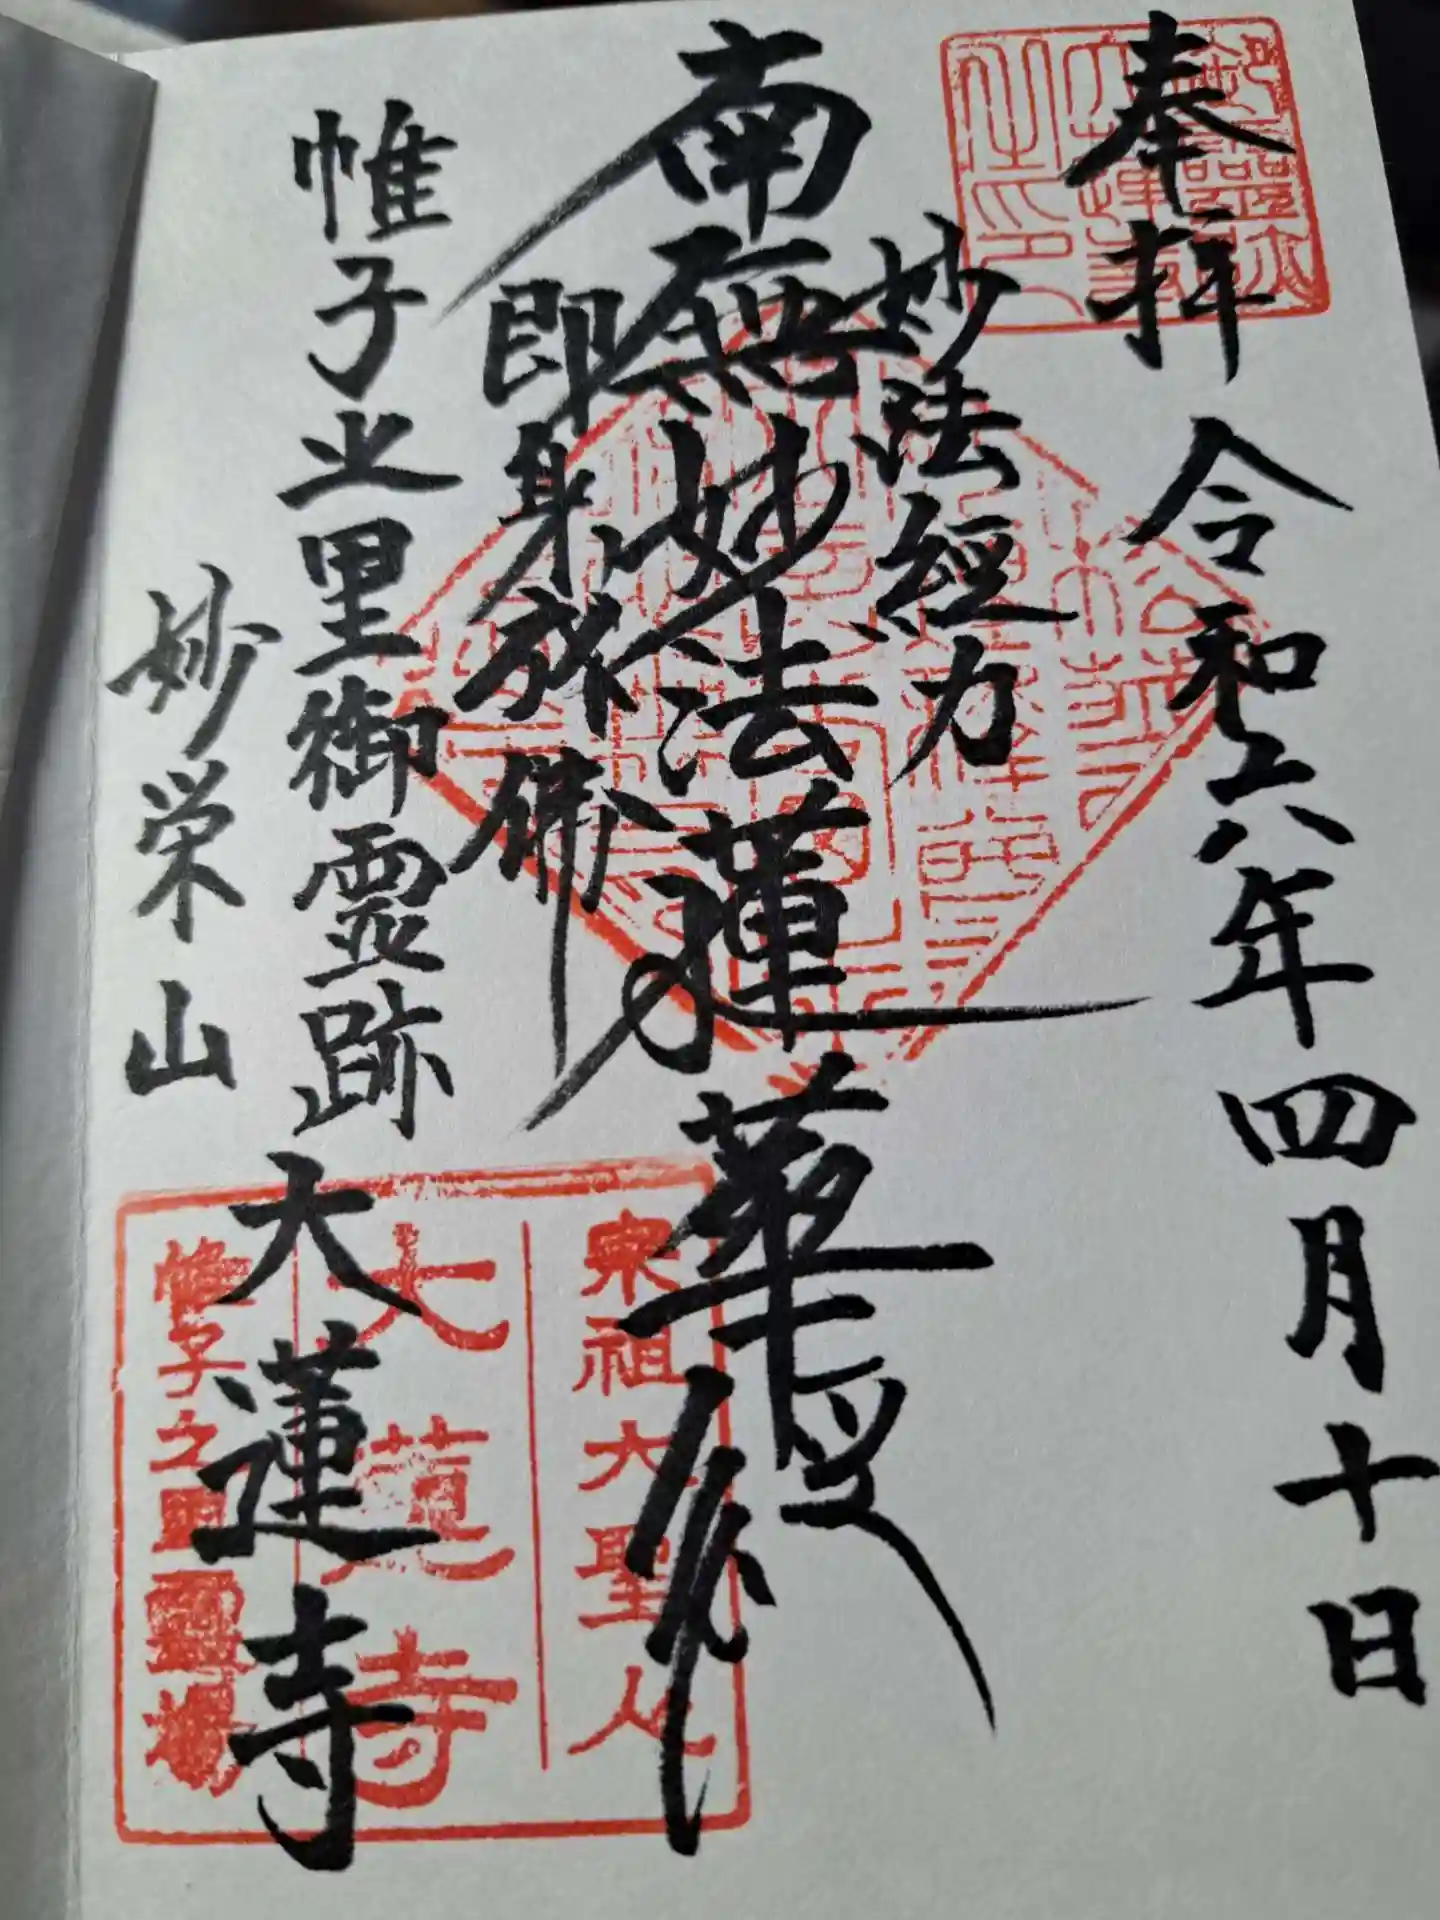 奉拝 令和六年四月十日
妙法經力
南無妙法蓮華經
即身成佛
帷子之里御霊跡
妙栄山 大蓮寺
宗祖大聖人
大蓮寺
帷子之里霊場